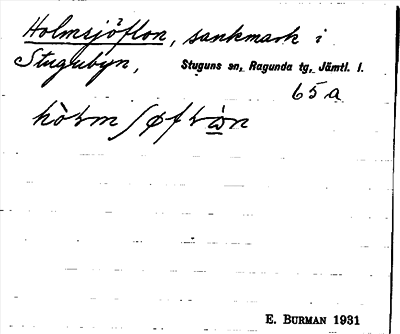 Holmsjöflon, sankmark i
Stugubyn, Stuguns sn, Ragunda tg, Jämtl. l.
65a
E. BURMAN 1931